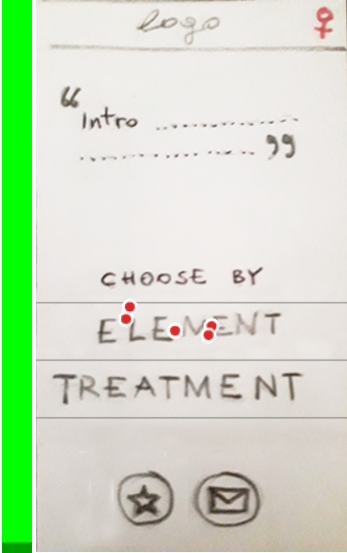 logo
“Intro ....................
........................ ”
CHOOSE BY
ELEMENT
TREATMENT